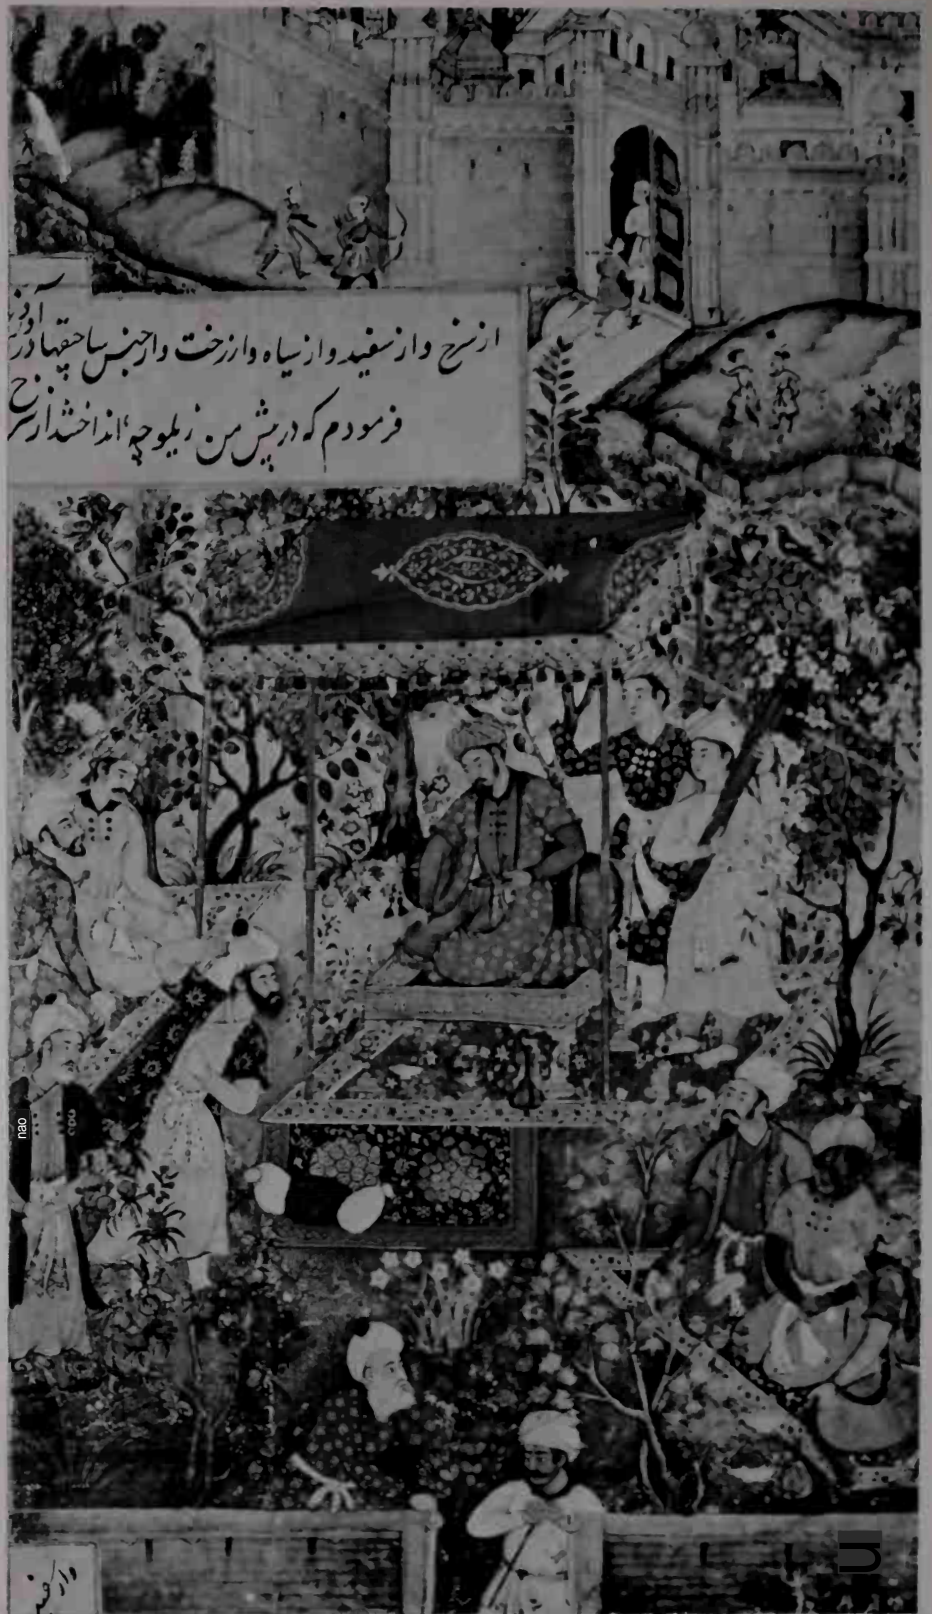 از سرخ و از سفید و از سیاه و از رخت و از جنس ساچقها در
فرمودم که در پیش من زیلوچه انداختند از سر
nao